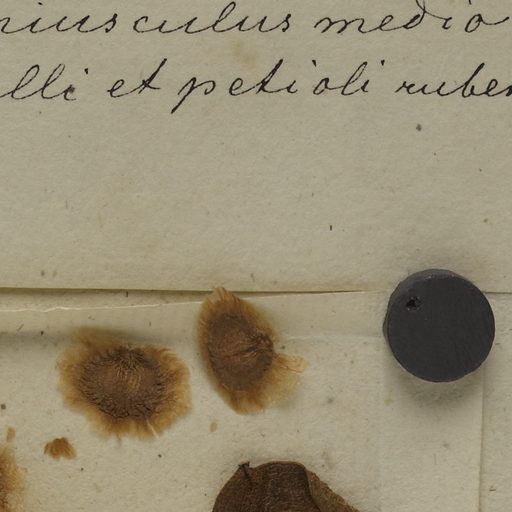 niusculus medio
lli et petioli ruben